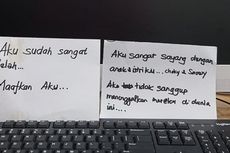 Aku sudah sangat
lelah...
Maafkan Aku...
Aku sangat sayang dengan
anak & istriku..., chaby & Snowy
Aku tidak sanggup
meninggalkan mereka di dunia
ini....